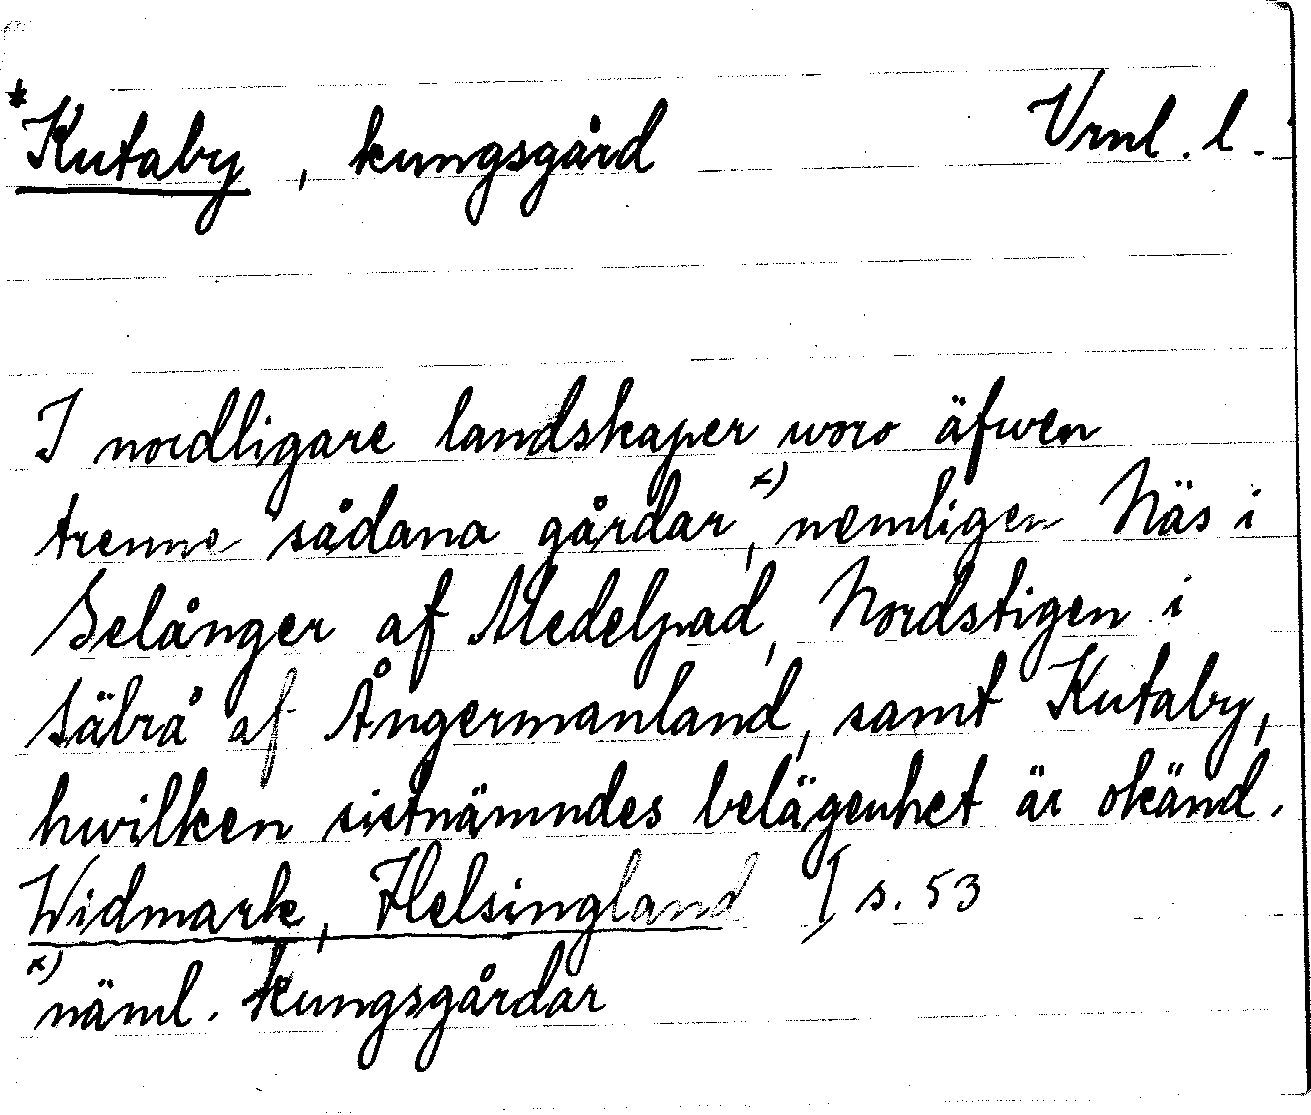 *Kutaby, kungsgård Vrml. l.
I nordligare landskaper woro äfwen
trenne sådana gårdar,x) nemligen Näs i
Selånger af Medelpad, Nordstigen i
Säbrå af Ångermanland, samt Kutaby,
hwilken sistnämndes belägenhet är okänd.
Widmark, Helsingland I s. 53
x) näml. kungsgårdar